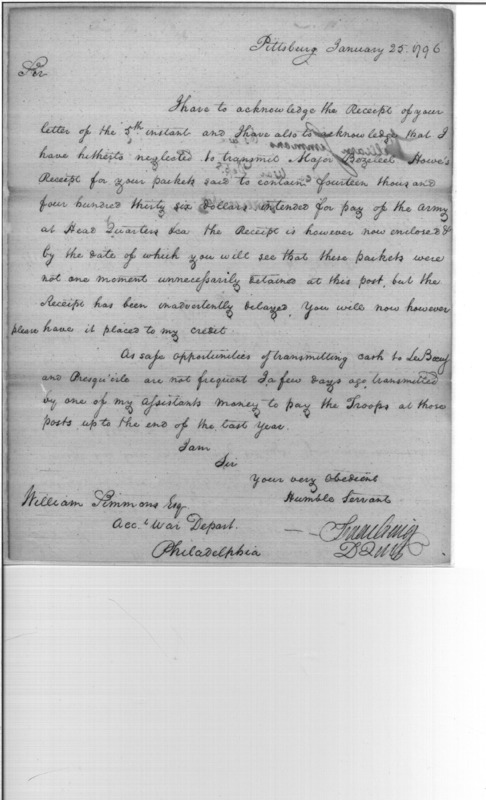 Pittsburg January 25. 1796
Sir
I have to acknowledge the Receipt of your
letter of the 5th instant and I have also to acknowledge that I
have hetherto neglected to transmit Major Bozeleel Howe's
Receipt for your packets said to contain fourteen thousand
four hundred thirty six dollars intended for pay of the army
at Head Quarters &ca the Receipt is however now enclosed &
by the date of which you will see that these packets were
not one moment unnecessarily detained at this post, but the
Receipt has been inadvertently delayed, You will now however
please have it placed to my credit.
As safe opportunities of transmitting cash to LeBoeuf
and Presqu'isle are not frequent I a few days ago transmitted
by one of my assistants money to pay the Troops at those
posts up to the end of the last Year.
I am
Sir
Your very Obedient
Humble Servant
William Simmons Esq
Acct War Depart.
Philadelphia
Isaac Craig
DQMG